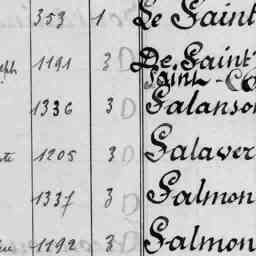 353 1 Le Saint
eph 1191 3 De Saint
Saint - Co
1336 3 Salanson
te 1205 3 Salaver
1337 3 Salmon
1192 3 Salmon